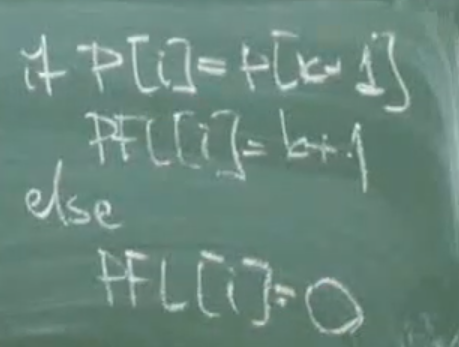 if P[i]=P[k+1]
PFL[i]=k+1
else
PFL[i]=0